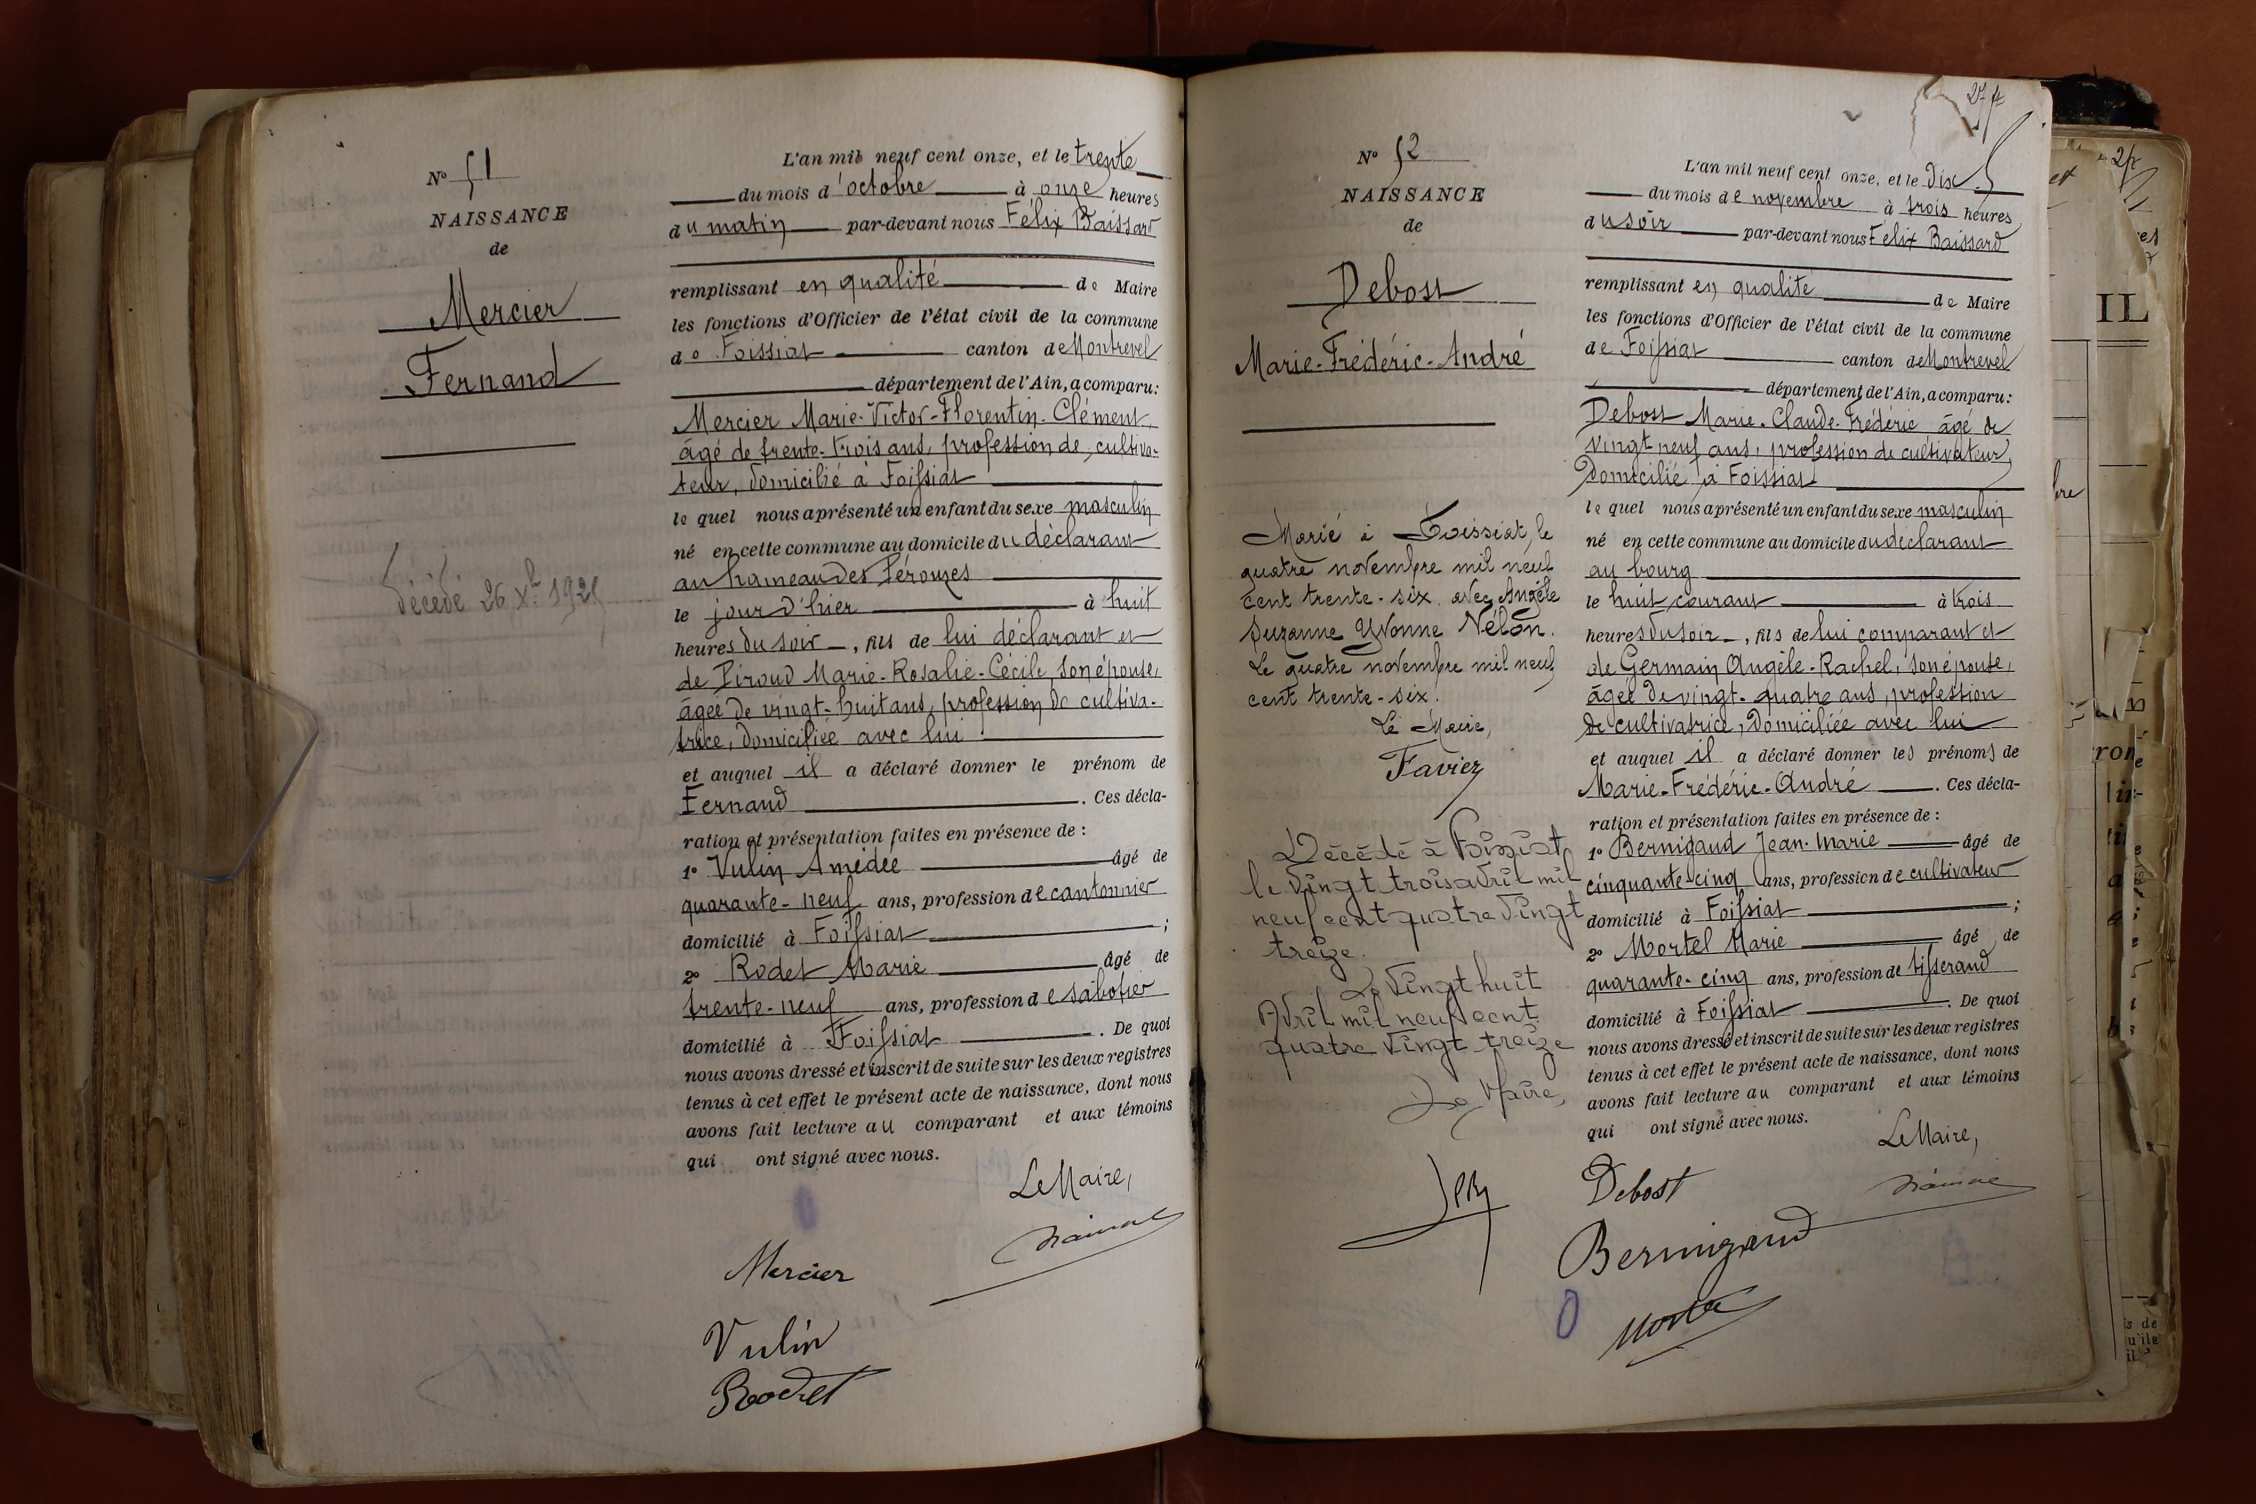 No 51
NAISSANCE
de
Mercier
Fernand
décédé 26 Xbre
L'an mil neuf cent onze, et le trente
du mois d'octobre à onze heures
du matin par-devant nous Félix Baissard
remplissant en qualité de Maire
les fonctions d'Officier de l'état civil de la commune
de Foissiat canton de Montrevel
département de l'Ain, a comparu:
Mercier Marie-Victor-Florentin-Clément,
âgé de trente-trois ans, profession de cultiva-
teur, domicilié à Foissiat
le quel nous a présenté un enfant du sexe masculin
né en cette commune au domicile du déclarant
au hameau des Pérouzes
le jour d'hier à huit
heures du soir, fils de lui déclarant et
de Piroud Marie-Rosalie-Cécile, son épouse,
âgée de vingt-huit ans, profession de cultiva-
trice, domiciliée avec lui.
et auquel il a déclaré donner le prénom de
Fernand. Ces décla-
ration et présentation faites en présence de :
1o Vulin Amédée âgé de
quarante-neuf ans, profession de cantonnier
domicilié à Foissiat ;
2o Rodet Marie âgé de
trente-neuf ans, profession de sabotier
domicilié à Foissiat. De quoi
nous avons dressé et inscrit de suite sur les deux registres
tenus à cet effet le présent acte de naissance, dont nous
avons fait lecture au comparant et aux témoins
qui ont signé avec nous.
Le Maire,
Mercier
Vulin
Rodet
No 52
NAISSANCE
de
Debost
Marie-Frédéric-André
Marié à Foissiat, le
quatre novembre mil neuf
cent trente-six avec Angèle
Suzanne Yvonne Nélon.
Le quatre novembre mil neuf
cent trente-six.
Le Maire,
Favier
Décédé à Foissiat
le vingt trois avril mil
neuf cent quatre vingt
treize.
Le vingt huit
Avril mil neuf cent
quatre vingt treize
Le Maire,
27
L'an mil neuf cent onze, et le dix
du mois de novembre à trois heures
du soir par-devant nous Félix Baissard
remplissant en qualité de Maire
les fonctions d'Officier de l'état civil de la commune
de Foissiat canton de Montrevel
département de l'Ain, a comparu:
Debost Marie-Claude-Frédéric âgé de
vingt neuf ans, profession de cultivateur,
domicilié à Foissiat
le quel nous a présenté un enfant du sexe masculin
né en cette commune au domicile du déclarant
au bourg
le huit courant à trois
heures du soir, fils de lui comparant et
de Germain Angèle-Rachel, son épouse,
âgée de vingt-quatre ans, profession
de cultivatrice, domiciliée avec lui
et auquel il a déclaré donner les prénoms de
Marie-Frédéric-André. Ces décla-
ration et présentation faites en présence de :
1o Bernigaud Jean-Marie âgé de
cinquante-cinq ans, profession de cultivateur
domicilié à Foissiat ;
2o Mortel Marie âgé de
quarante-cinq ans, profession de tisserand
domicilié à Foissiat. De quoi
nous avons dressé et inscrit de suite sur les deux registres
tenus à cet effet le présent acte de naissance, dont nous
avons fait lecture au comparant et aux témoins
qui ont signé avec nous.
Le Maire,
Debost
Bernigaud
IL